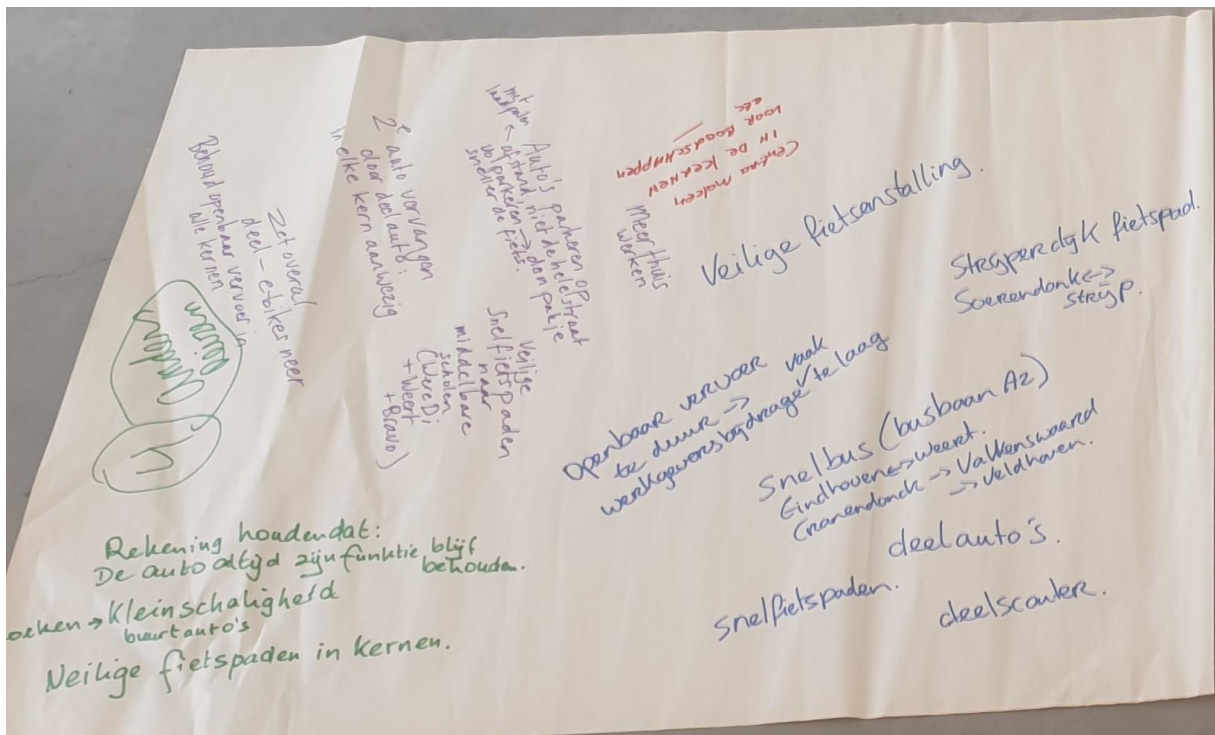 Behoud openbaar vervoer in
alle kernen
Zet overal
deel-e-bikes neer
2e auto vervangen
door deelauto;
in elke kern aanwezig
Auto's parkeren op
afstand, niet de hele straat
vol parkeren → dan pak je
sneller de fiets.
met
laadpalen
Veilige
snelfietspaden
naar
middelbare
scholen
(Were Di
+ Weert
+ Bravo)
Meer thuis
werken
Centra maken
IN DE KERNEN
VOOR BOODSCHAPPEN
etc
Veilige fietsenstalling.
Strijperdijk fietspad.
Soerendonk <->
strijp.
Openbaar vervoer
te duur → vaak
werkgeversbijdrage te laag
Snelbus (busbaan A2)
Eindhoven <-> Weert.
Cranendonck → Valkenswaard
→ Veldhoven.
deelauto's.
snelfietspaden.
deelscouter.
Rekening houden dat:
De auto altijd zijn funktie blijf
behouden.
→ Kleinschaligheid
buurtauto's
Veilige fietspaden in kernen.